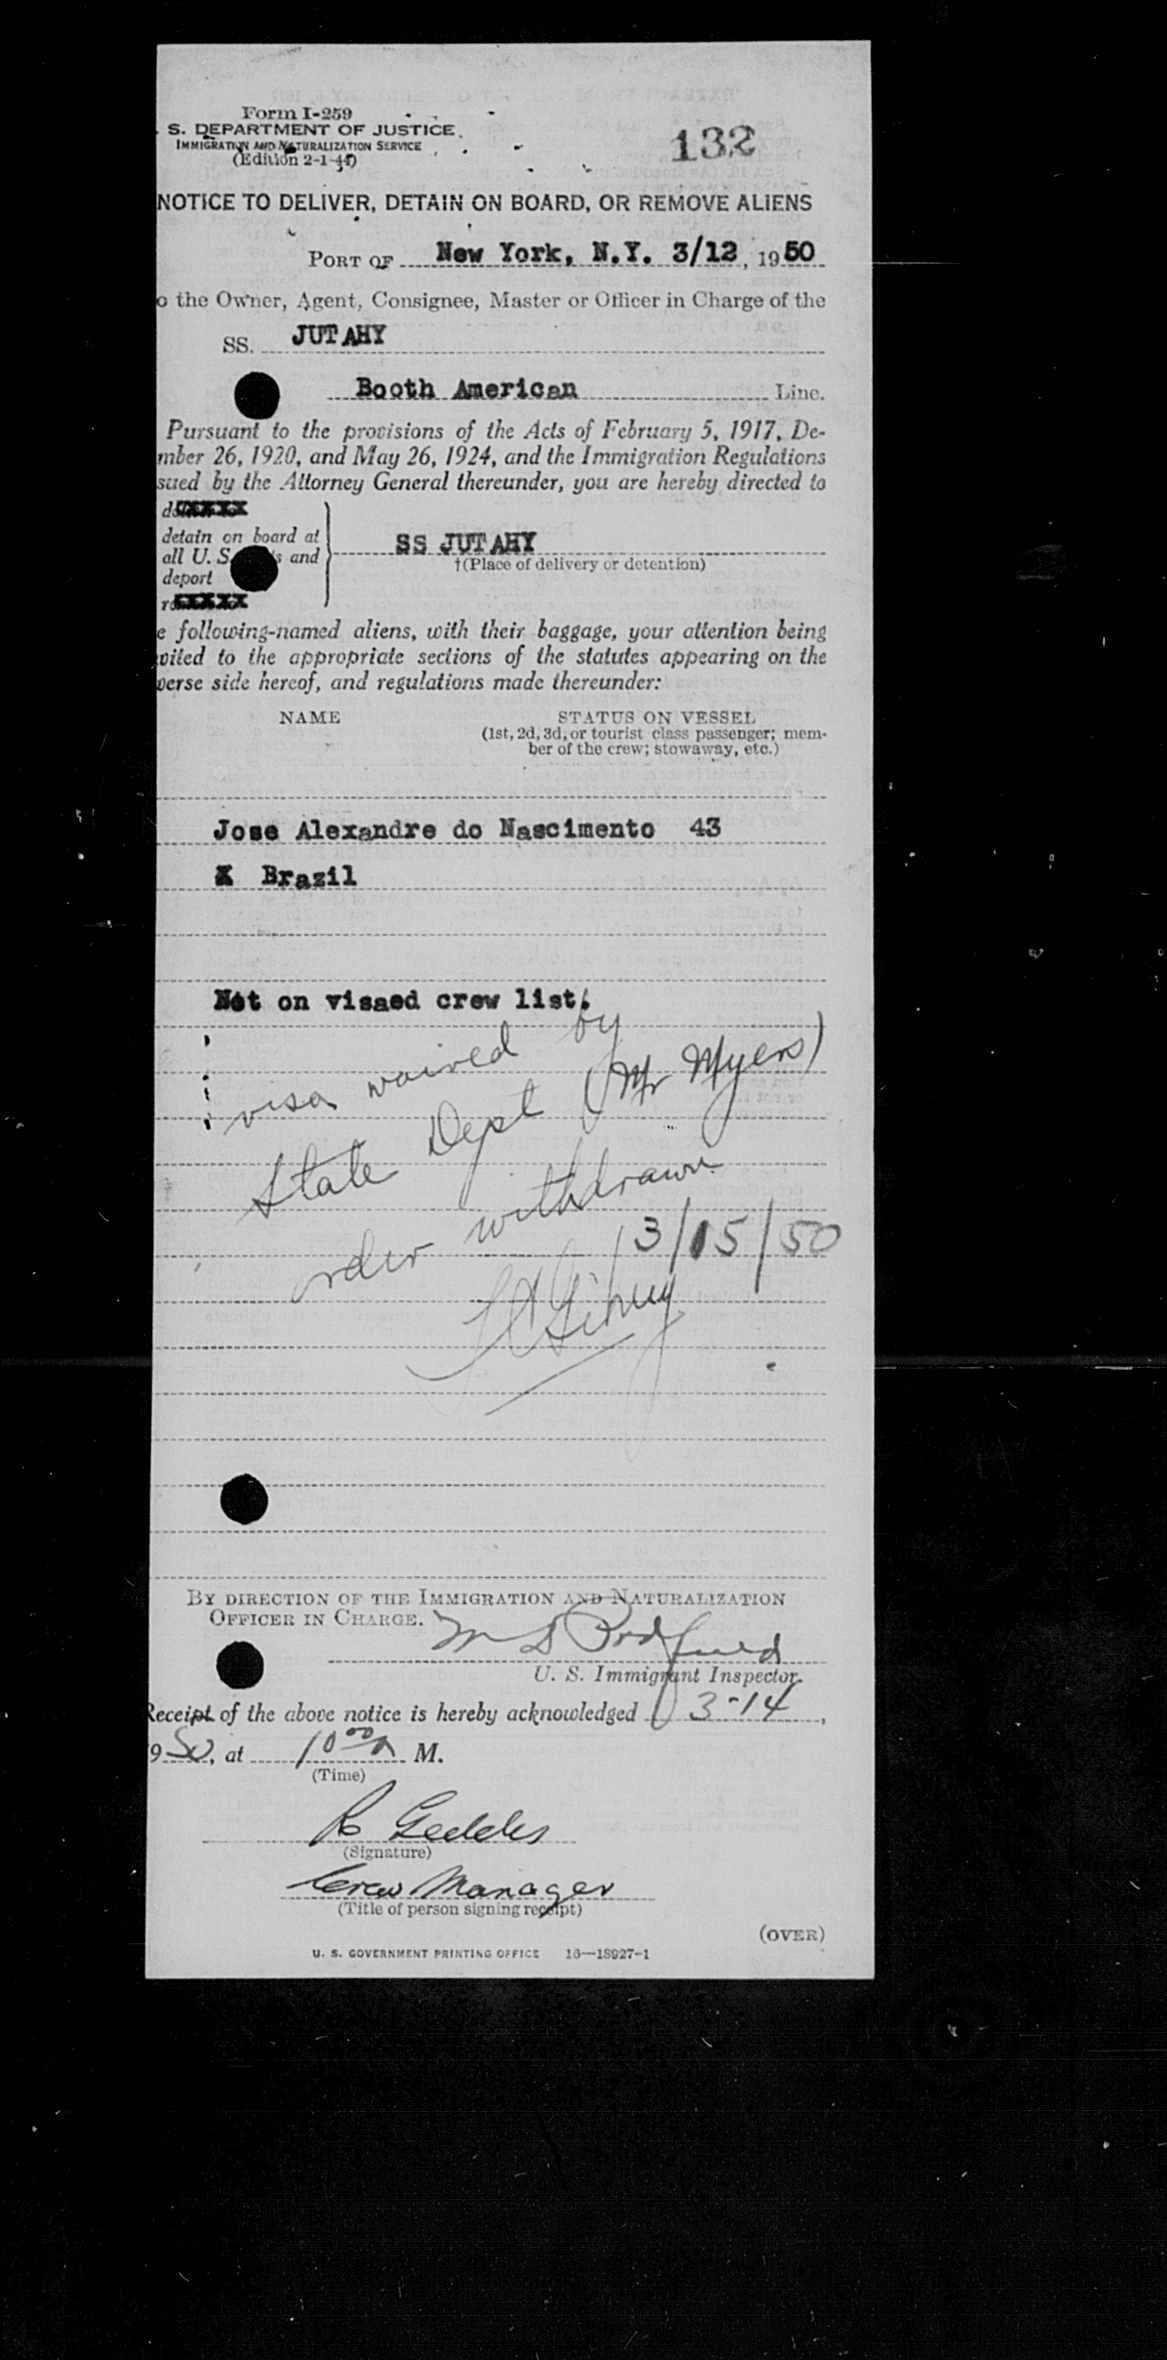 Form I-259
S. DEPARTMENT OF JUSTICE
IMMIGRATION AND NATURALIZATION SERVICE
(Edition 2-1-44)
132
NOTICE TO DELIVER, DETAIN ON BOARD, OR REMOVE ALIENS
PORT OF New York, N.Y. 3/12, 1950
o the Owner, Agent, Consignee, Master or Officer in Charge of the
SS. JUTAHY
Booth American Line.
Pursuant to the provisions of the Acts of February 5, 1917, De-
mber 26, 1920, and May 26, 1924, and the Immigration Regulations
sued by the Attorney General thereunder, you are hereby directed to
detain on board at
all U. S. and
deport
SS JUTAHY
†(Place of delivery or detention)
e following-named aliens, with their baggage, your attention being
vited to the appropriate sections of the statutes appearing on the
verse side hereof, and regulations made thereunder:
NAME STATUS ON VESSEL
(1st, 2d, 3d, or tourist class passenger; mem-
ber of the crew; stowaway, etc.)
Jose Alexandre do Nascimento 43
X Brazil
Not on visaed crew list.
visa waived by
State Dept (Mr Myers)
order withdrawn
3/15/50
BY DIRECTION OF THE IMMIGRATION AND NATURALIZATION
OFFICER IN CHARGE.
U. S. Immigrant Inspector.
Receipt of the above notice is hereby acknowledged 3-14,
950, at 10 00 A M.
(Time)
R Geddes
(Signature)
Crew Manager
(Title of person signing receipt)
(OVER)
U. S. GOVERNMENT PRINTING OFFICE 16—18927-1